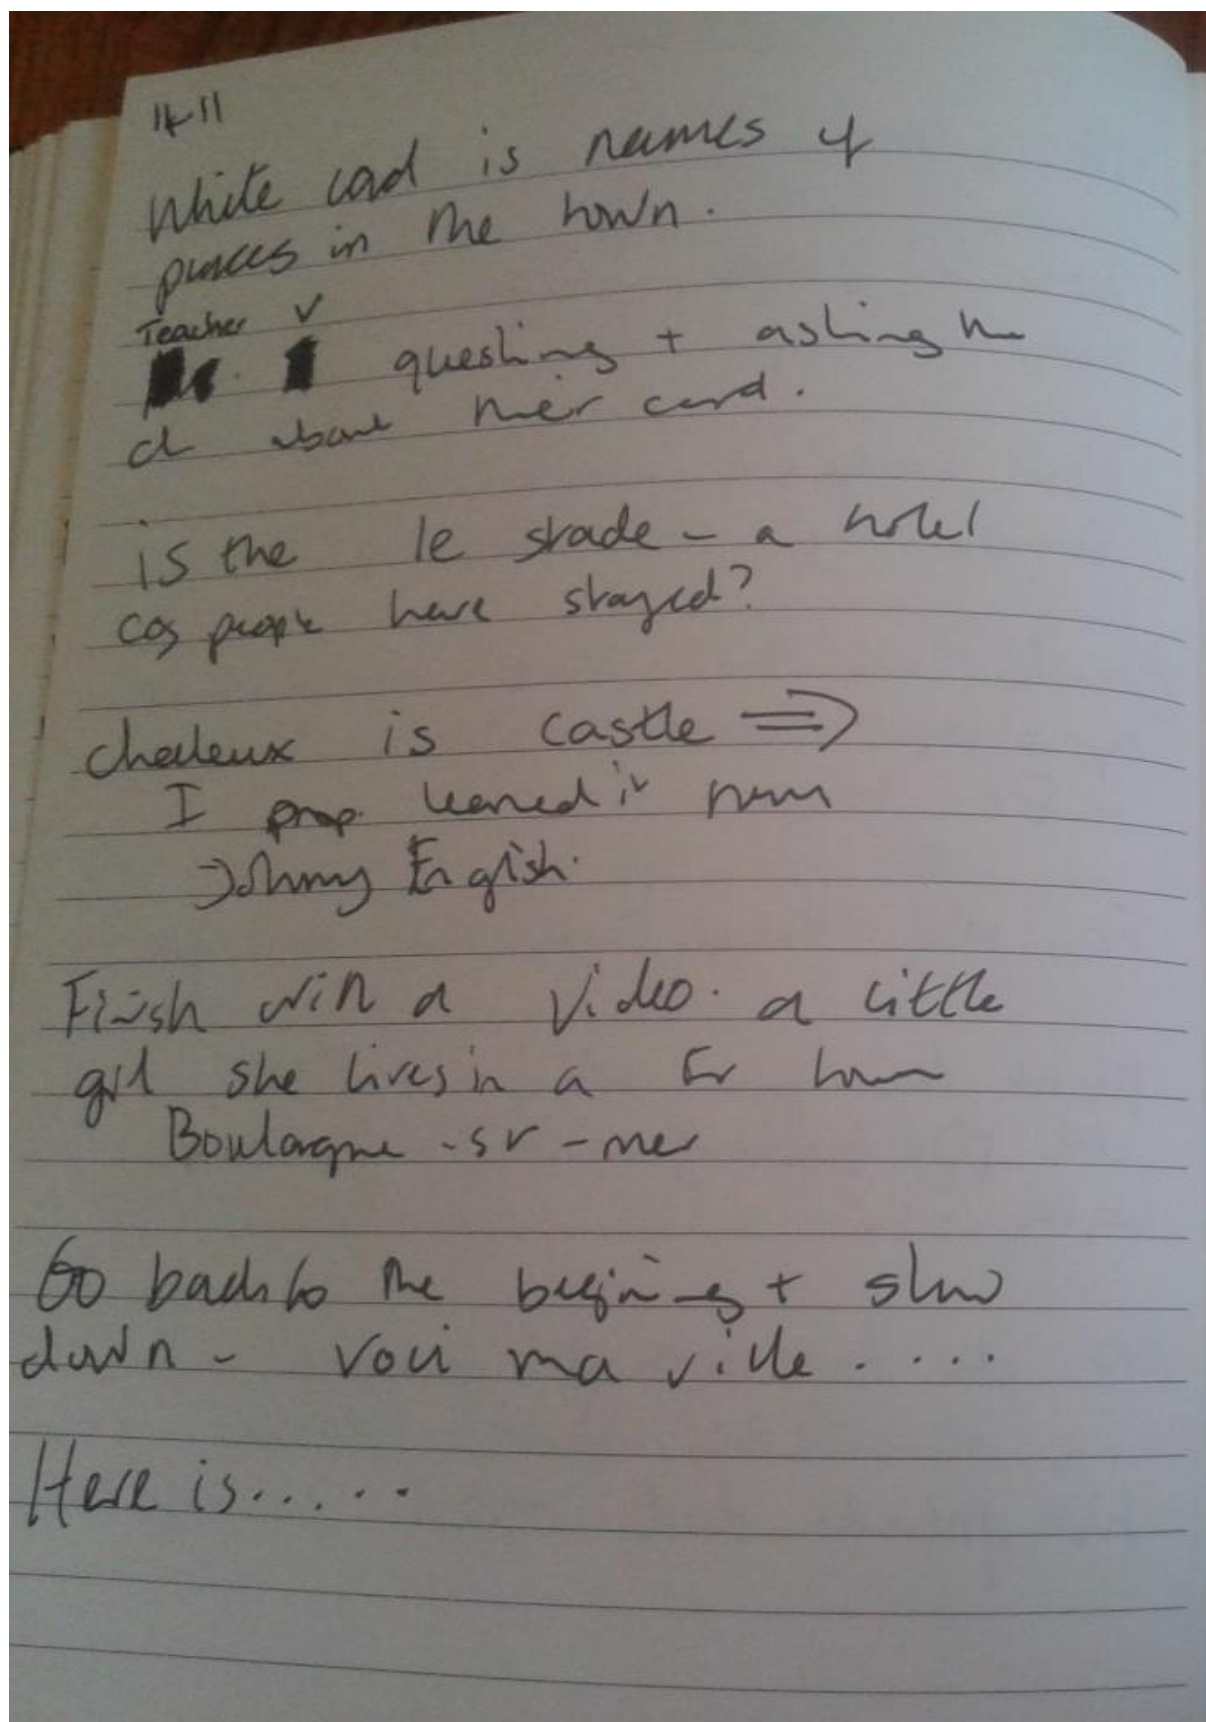 11-11
White card is names of
places in the town.
Teacher V
questing + asking the
ch about their card.
is the le stade - a hotel
cos people have stayed?
chateux is castle ⇒
I prop. learned it from
Johnny English.
Finish with a video. a little
girl she lives in a Fr town
Boulogne-sr-mer
Go back to the begining + slow
down - voici ma ville....
Here is.....